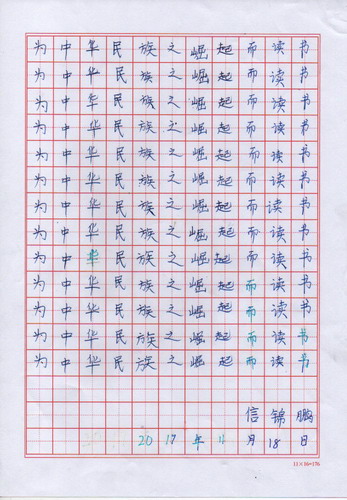 为中华民族之崛起而读书
为中华民族之崛起而读书
为中华民族之崛起而读书
为中华民族之崛起而读书
为中华民族之崛起而读书
为中华民族之崛起而读书
为中华民族之崛起而读书
为中华民族之崛起而读书
为中华民族之崛起而读书
为中华民族之崛起而读书
为中华民族之崛起而读书
为中华民族之崛起而读书
为中华民族之崛起而读书
信锦鹏
2017年11月18日
11×16=176